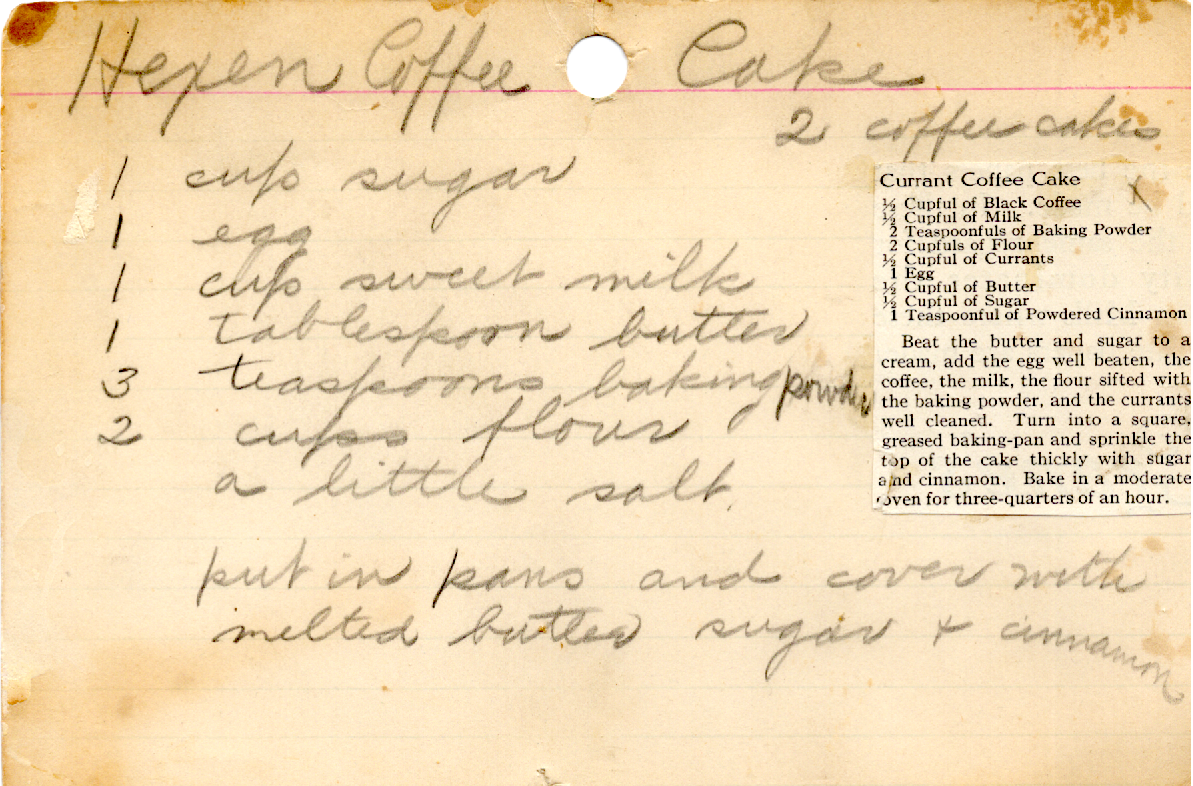 Hexen Coffee Cake
2 coffee cakes
1 cup sugar
1 egg
1 cup sweet milk
1 tablespoon butter
3 teaspoons baking powder
2 cups flour
a little salt.
put in pans and cover with
melted butter sugar + cinnamon
Currant Coffee Cake x
½ Cupful of Black Coffee
½ Cupful of Milk
2 Teaspoonfuls of Baking Powder
2 Cupfuls of Flour
½ Cupful of Currants
1 Egg
½ Cupful of Butter
½ Cupful of Sugar
1 Teaspoonful of Powdered Cinnamon
Beat the butter and sugar to a
cream, add the egg well beaten, the
coffee, the milk, the flour sifted with
the baking powder, and the currants
well cleaned. Turn into a square,
greased baking-pan and sprinkle the
top of the cake thickly with sugar
and cinnamon. Bake in a moderate
oven for three-quarters of an hour.